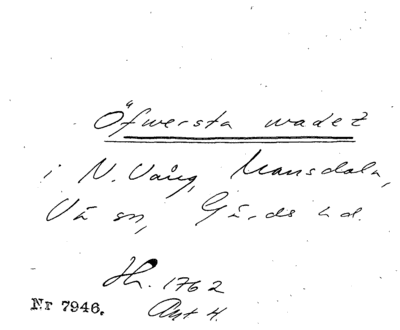 Öfwersta wadet
i N. Vång, Mansdala,
Vä sn, Gärds hd.
Hh. 1762
Nr 7946. Akt 4.